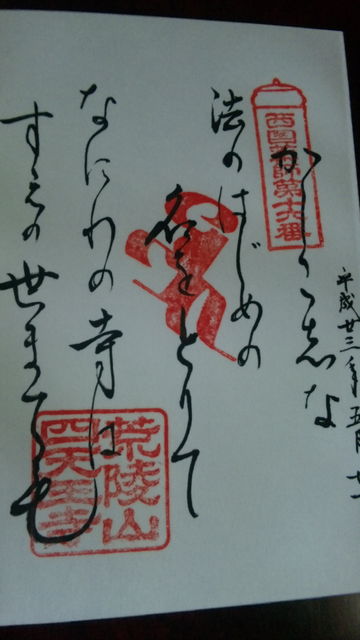 平成廿三年五月
西国薬師第十六番
かしこ志な
法のはじめの
名をとりて
なにわの寺は
すえの世まても
荒陵山
四天王寺